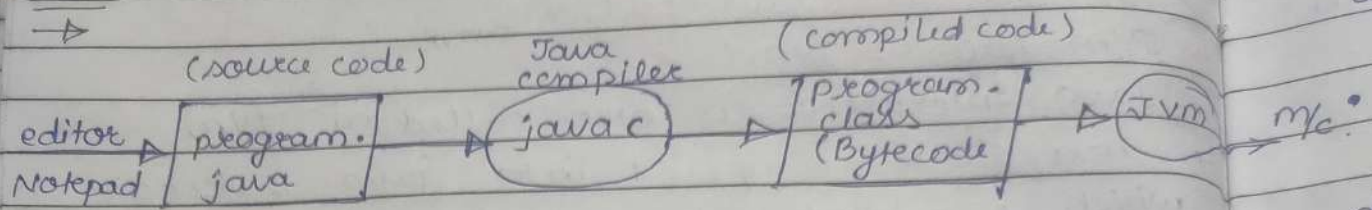 (source code)
Java
compiler
(compiled code)
editor
Notepad
program.
java
javac
program.
class
(Bytecode
JVM
M/c.